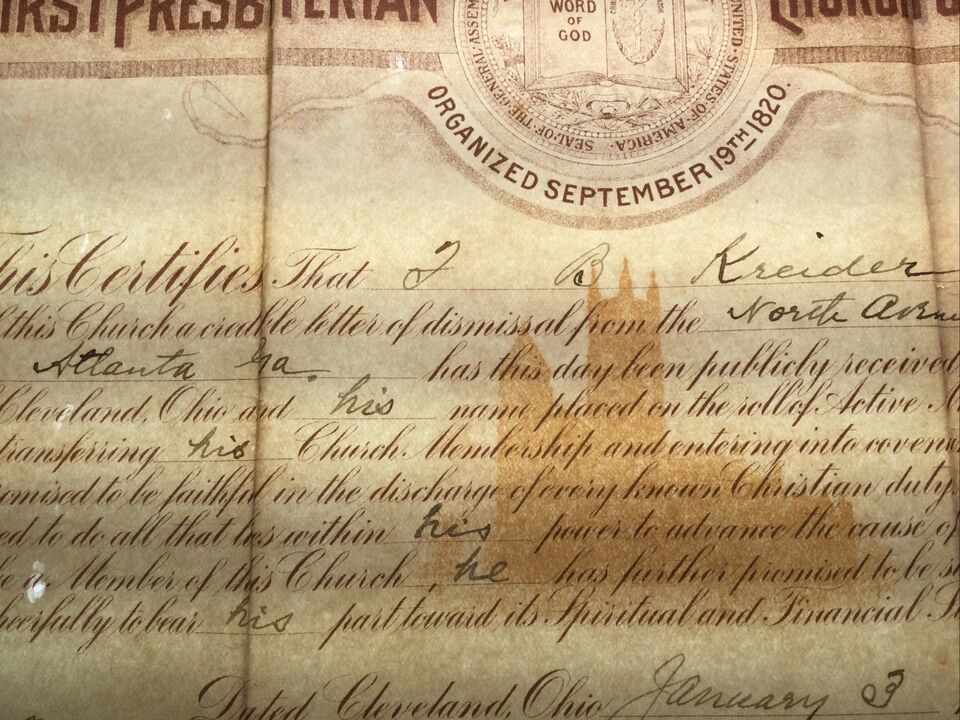 FIRST PRESBYTERIAN CHURCH
WORD
OF
GOD
SEAL OF THE GENERAL ASSEM
UNITED STATES OF AMERICA
ORGANIZED SEPTEMBER 19TH 1820.
his Certifies That J B Kreider
this Church a credible letter of dismissal from the North Avenu
Atlanta Ga. has this day been publicly received
Cleveland, Ohio and his name placed on the roll of Active M
transferring his Church Membership and entering into coven
omised to be faithful in the discharge of every known Christian duty,
ed to do all that lies within his power to advance the cause of
be a Member of this Church, he has further promised to be s
heerfully to bear his part toward its Spiritual and Financial Su
Dated Cleveland, Ohio January 3